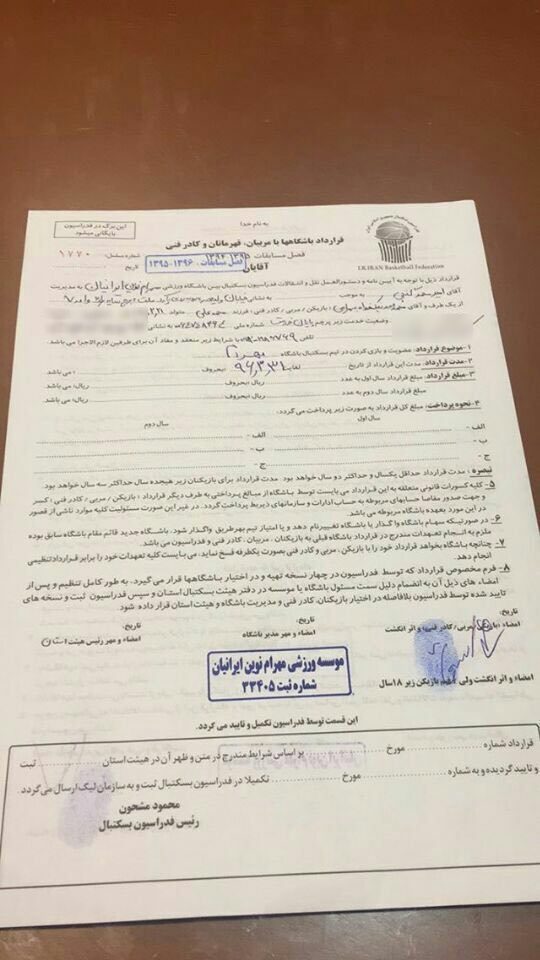 به نام خدا
این برگ در فدراسیون
بایگانی میشود
قرارداد باشگاهها با مربیان، قهرمانان و کادر فنی
فصل مسابقات
شماره مسلسل: ۱۷۷۰
فصل مسابقات ۱۳۹۶-۱۳۹۵
تاریخ
آقایان
I.R.IRAN Basketball Federation
قرارداد ذیل با توجه به آیین نامه و دستورالعمل نقل و انتقالات فدراسیون بسکتبال بین باشگاه ورزشی مهرام نوین ایرانیان به مدیریت
آقای به موجب به نشانی
از یک طرف و آقای بازیکن / مربی / کادر فنی: فرزند متولد
وضعیت خدمت زیر پرچم پایان خدمت شماره ملی به نشانی
تلفن با شرایط زیر منعقد و مفاد آن برای طرفین لازم الاجرا می باشد.
۱- موضوع قرارداد: عضویت و بازی کردن در تیم بسکتبال باشگاه مهرام
۲- مدت قرارداد: مدت این قرارداد از تاریخ لغایت ۹۶/۳/۳۱ می باشد.
۳- مبلغ قرارداد: مبلغ قرارداد سال اول به عدد ریال، بحروف ریال، می باشد.
مبلغ قرارداد سال دوم به عدد ریال، بحروف ریال، می باشد.
۴- نحوه پرداخت: مبلغ کل قرارداد به صورت زیر پرداخت می گردد.
سال اول
سال دوم
الف -
الف -
ب -
ب -
ج -
ج -
تبصره: مدت قرارداد حداقل یکسال و حداکثر دو سال خواهد بود. مدت قرارداد برای بازیکنان زیر هیجده سال حداکثر سه سال خواهد بود.
۵- کلیه کسورات قانونی متعلقه به این قرارداد می بایست توسط باشگاه از مبالغ پرداختی به طرف دیگر قرارداد: بازیکن / مربی / کادر فنی: کسر
و جهت صدور مفاصا حسابهای مربوطه به حساب ادارات و سازمانهای ذیربط پرداخت گردد. در غیر این صورت مسئولیت کلیه موارد ناشی از قصور
در این مورد بعهده باشگاه مربوطه می باشد.
۶- در صورتیکه سهام باشگاه واگذار یا باشگاه تغییر نام دهد و یا امتیاز تیم بهرطریق واگذار شود. باشگاه جدید قائم مقام باشگاه سابق بوده و
ملزم به انجام تعهدات مندرج در قرارداد باشگاه قبلی به بازیکنان، مربیان، کادر فنی و فدراسیون می باشد.
۷- چنانچه باشگاه بخواهد قرارداد خود را با بازیکن، مربی و کادر فنی بصورت یکطرفه فسخ نماید، می بایست کلیه تعهدات خود را برابر قرارداد تنظیمی
انجام دهد.
۸- فرم مخصوص قرارداد که توسط فدراسیون در چهار نسخه تهیه و در اختیار باشگاهها قرار می گیرد، به طور کامل تنظیم و پس از
امضاء های ذیل آن به انضمام دلیل سمت مسئول باشگاه یا موسسه در دفتر هیئت بسکتبال استان و سپس فدراسیون ثبت و نسخه های
تایید شده توسط فدراسیون بلافاصله در اختیار بازیکنان، کادر فنی و مدیریت باشگاه و هیئت استان قرار داده شود.
تاریخ: تاریخ: تاریخ:
امضاء بازیکن / مربی / کادر فنی: و اثر انگشت امضاء و مهر مدیر باشگاه امضاء و مهر رئیس هیئت استان
موسسه ورزشی مهرام نوین ایرانیان
شماره ثبت ۳۳۴۰۵
امضاء و اثر انگشت ولی / قیم بازیکن زیر ۱۸ سال
این قسمت توسط فدراسیون تکمیل و تایید می گردد.
قرارداد شماره مورخ بر اساس شرایط مندرج در متن و ظهر آن در هیئت استان ثبت
و تایید گردیده و به شماره مورخ تکمیلا در فدراسیون بسکتبال ثبت و به سازمان لیگ ارسال می گردد.
محمود مشحون
رئیس فدراسیون بسکتبال